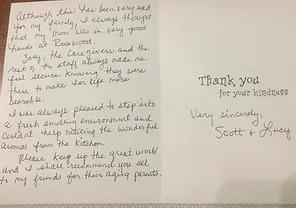 Although this has been very sad
for my family, I always thought
that my mom was in very good
hands at Rosewood.
Zoey, the caregivers and the
rest of the staff always made me
feel secure knowing they were
there to make her life more
bearable.
I was always pleased to step into
a fresh smelling environment and
couldn't help noticing the wonderful
aromas from the kitchen.
Please keep up the great work
and I shall recommend you all
to my friends for their aging parents.
Thank you
for your kindness
Very sincerely,
Scott & Lucy